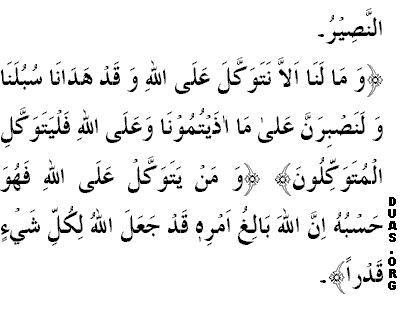 النَّصِيْرُ۔
﴿وَ مَا لَنَا اَلاَّ نَتَوَكَّلَ عَلَى اللهِ وَ قَدْ هَدَانَا سُبُلَنَا
وَ لَنَصْبِرَنَّ عَلىٰ مَا اٰذَيْتُمُوْنَا وَعَلَى اللهِ فَلْيَتَوَكَّلِ
الْمُتَوَكِّلُونَ﴾ ﴿وَ مَنْ يَتَوَكَّلْ عَلَى اللهِ فَهُوَ
حَسْبُهُ اِنَّ اللهَ بَالِغُ اَمْرِهٖ قَدْ جَعَلَ اللهُ لِكُلِّ شَيْءٍ
قَدْراً﴾۔
DUAS.ORG